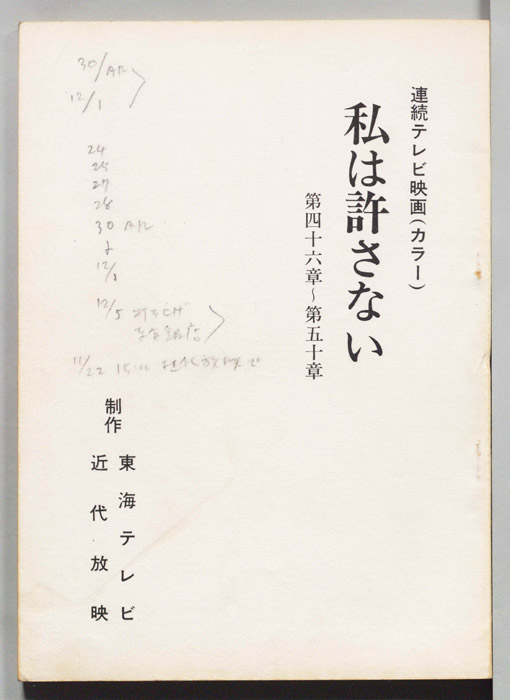 連続テレビ映画(カラー)
私は許さない
第四十六章~第五十章
制作 東海テレビ
近代放映
30/AR
12/1
24
25
27
28
30 AR
12/1
12/5
11/22 15:00